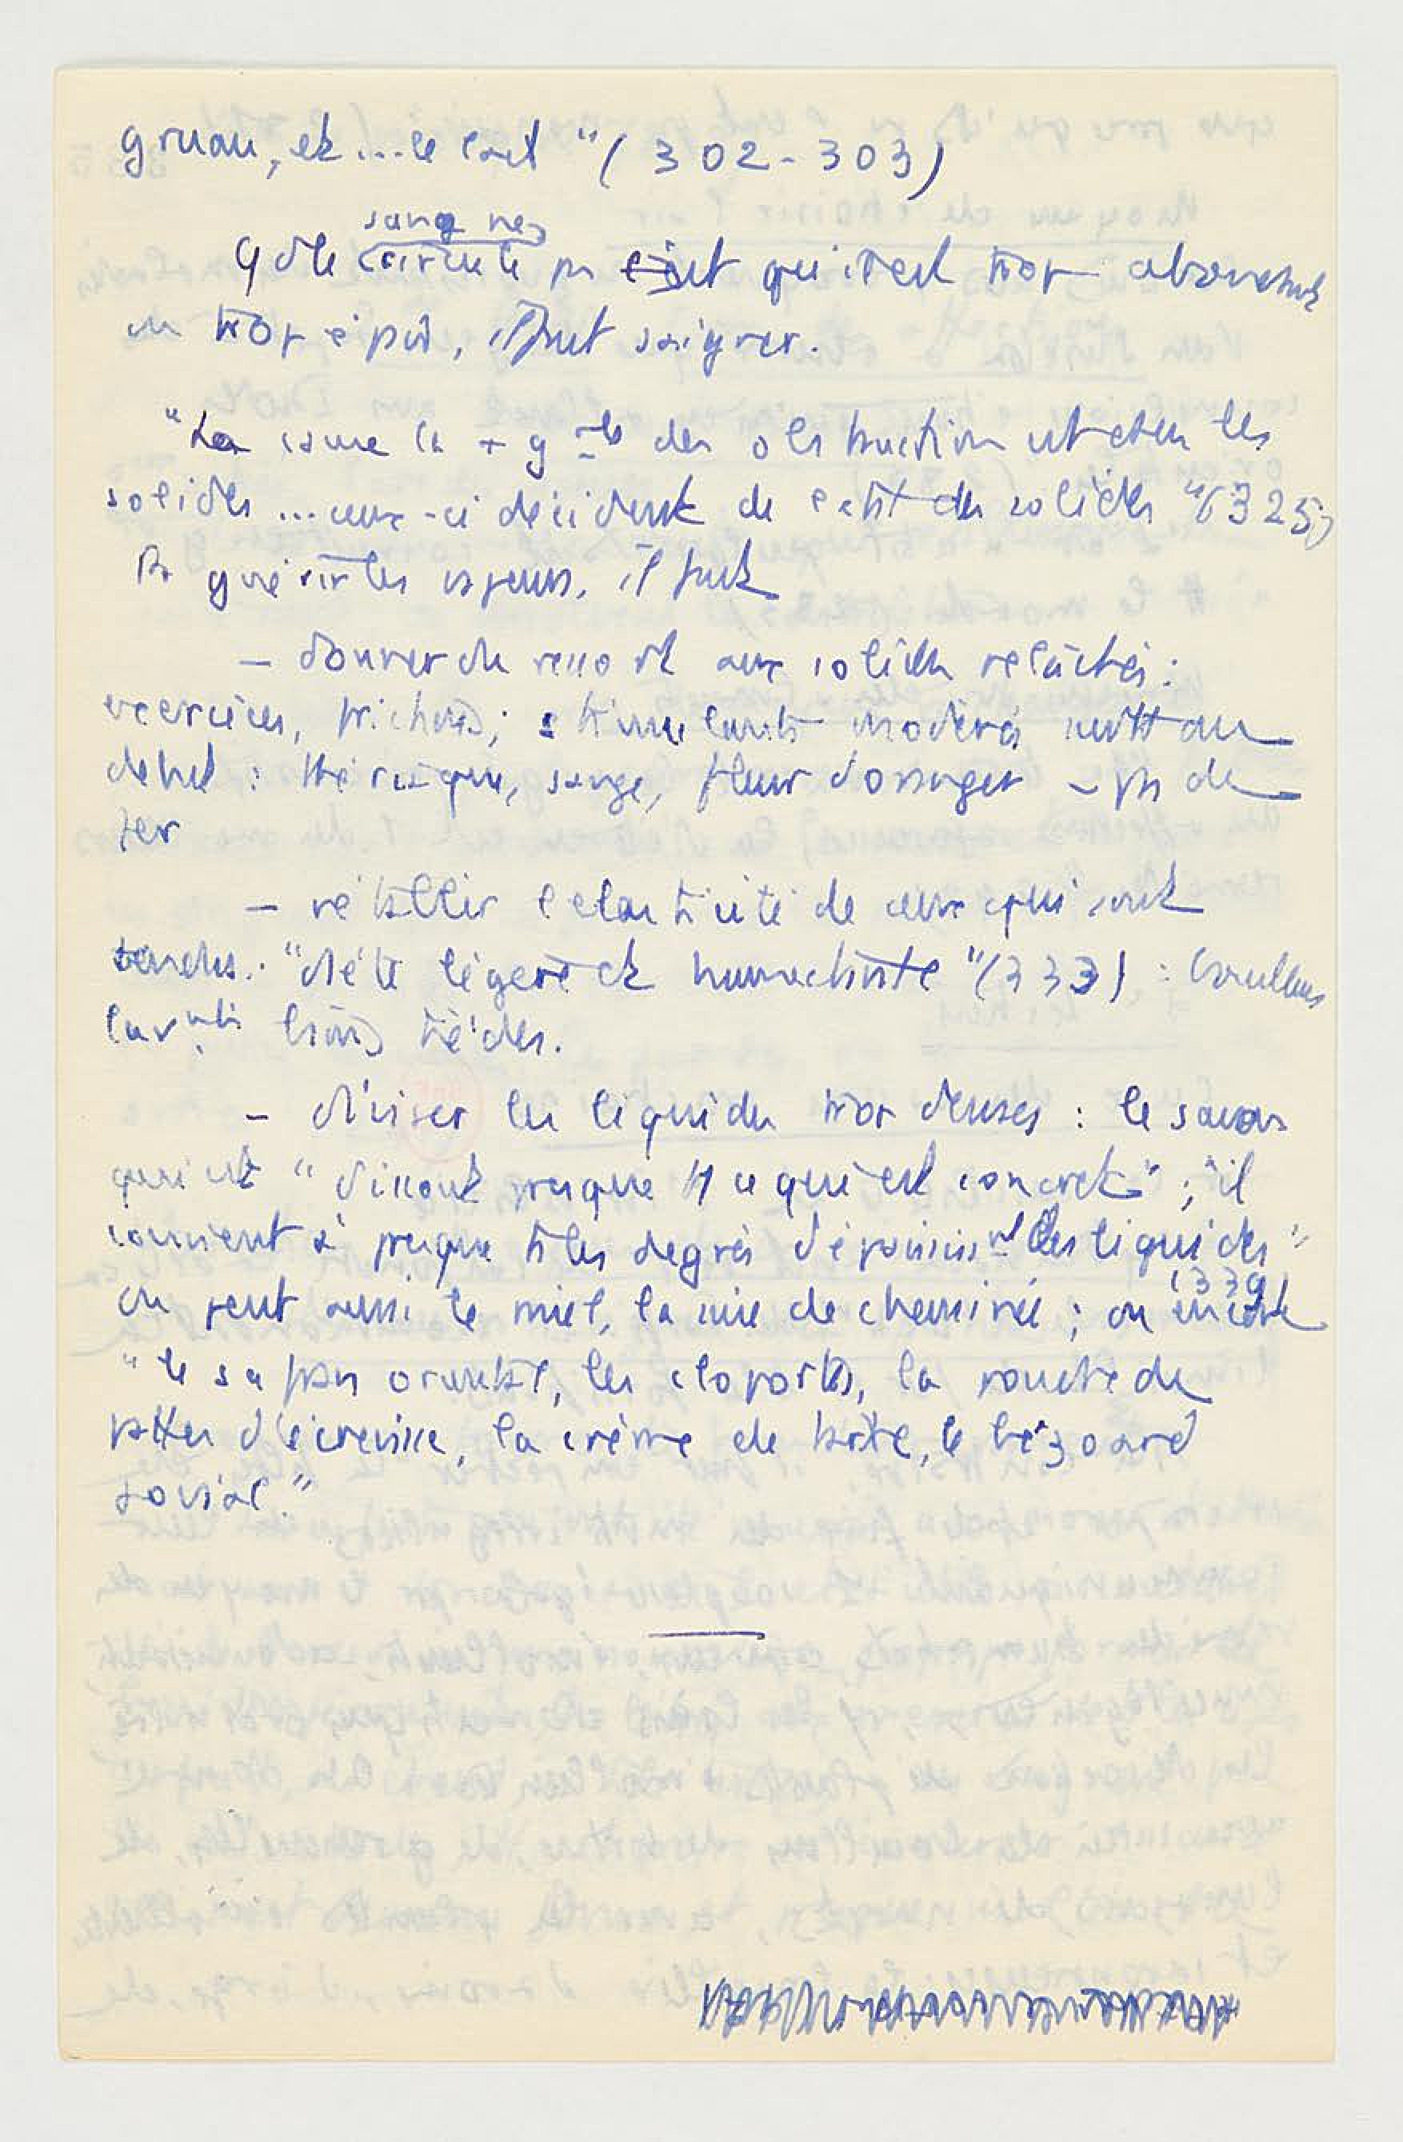 gruau, et ... le lait" (302-303)
sang ne
Qd le circule pas et qu'il est trop abondant
ou trop épais, il faut saigner.
"La cause la + g^ale des obstructions est chez les
solides ... ceux-ci décident de l'état des solides" (325)
Pr guérir les vapeurs, il faut
– donner du ressort aux solides relâchés :
exercices, frictions ; stimulants modérés surtt au
début : thériaque, sauge, fleur d'oranger – pas de
fer
– rétablir l'élasticité de ceux qui sont
tendus. "diète légère et humectante" (333) : bouillons
lav^nts bains tièdes.
– diviser les liquides trop denses : le savon
qui est "dissout presque tt ce qui est concret" ; "il
convient à presque ts les degrés d'épaississ^nt des liquides"
(339)
on peut aussi le miel, la suie de cheminée ; ou encore
"le safran oriental, les cloportes, la poudre de
pattes d'écrevisse, la crème de tartre, le bézoard
jovial."